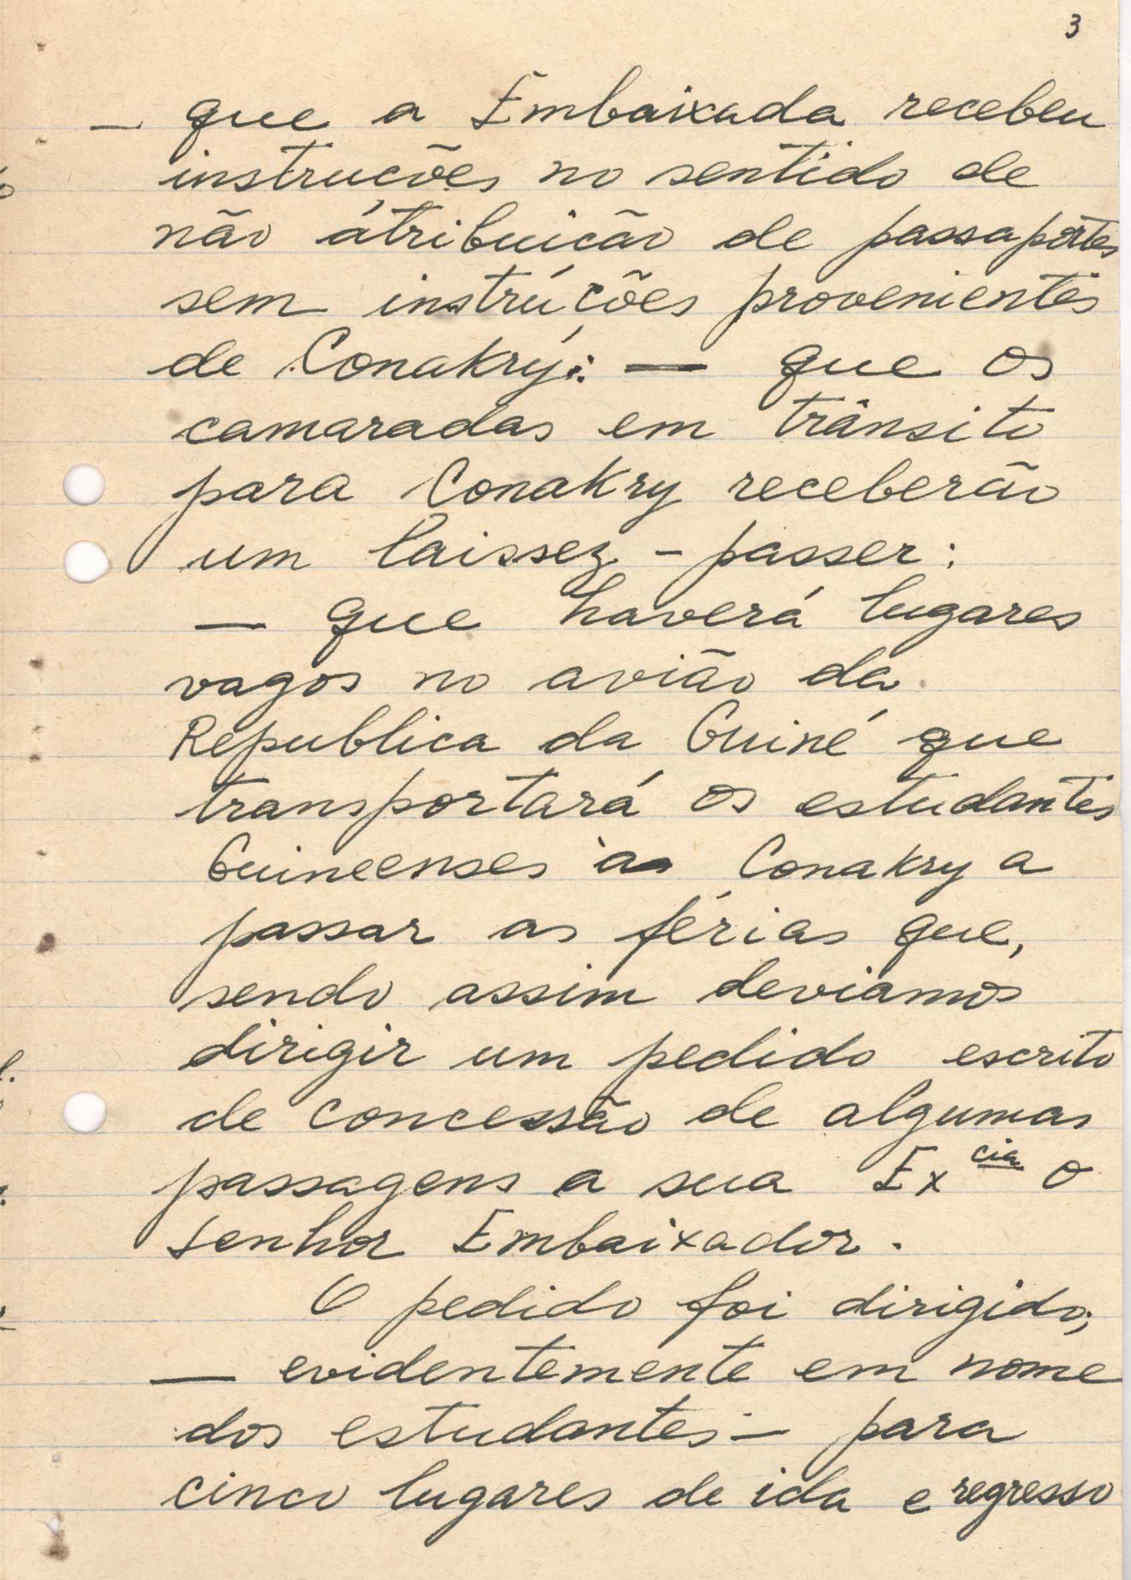 3
— que a Embaixada recebeu
instrucões no sentido de
não átribuicão de passaportes
sem instrúções provenientes
de Conakry: — que os
camaradas em trânsito
para Conakry receberão
um laissez - passer:
— que haverá lugares
vagos no avião da
Republica da Guiné que
transportará os estudantes
Guineenses à Conakry a
passar as férias que,
sendo assim deviamos
dirigir um pedido escrito
de concessão de algumas
passagens a sua Ex cia o
senhor Embaixador.
O pedido foi dirigido,
— evidentemente em nome
dos estudantes — para
cinco lugares de ida e regresso